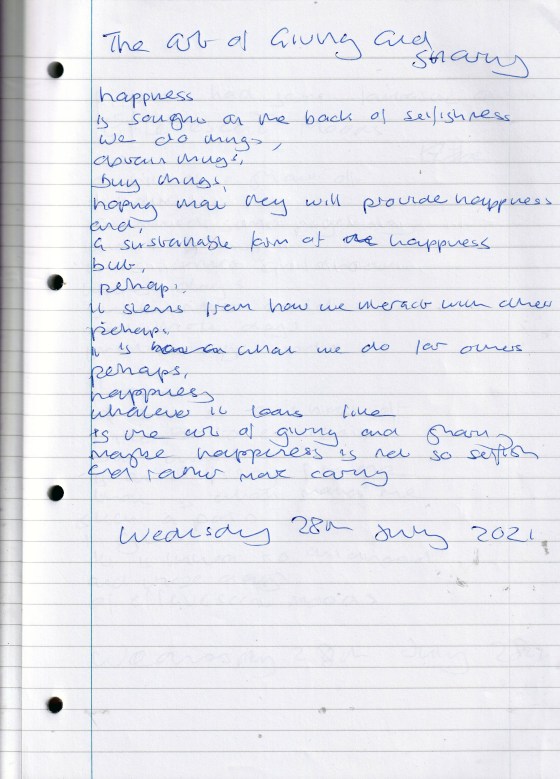 The art of Giving and
Sharing
happness
is sought on the back of selfishness
we do things,
obtain things,
buy things,
hoping that they will provide happness
and,
a sustainable form of the happness
but,
perhaps,
it stems from how we interact with other
perhaps,
it is what we do for others
perhaps,
happness
whatever it looks like
is the art of giving and sharing
maybe happiness is not so selfish
and rather more caring
Wednesday 28th July 2021